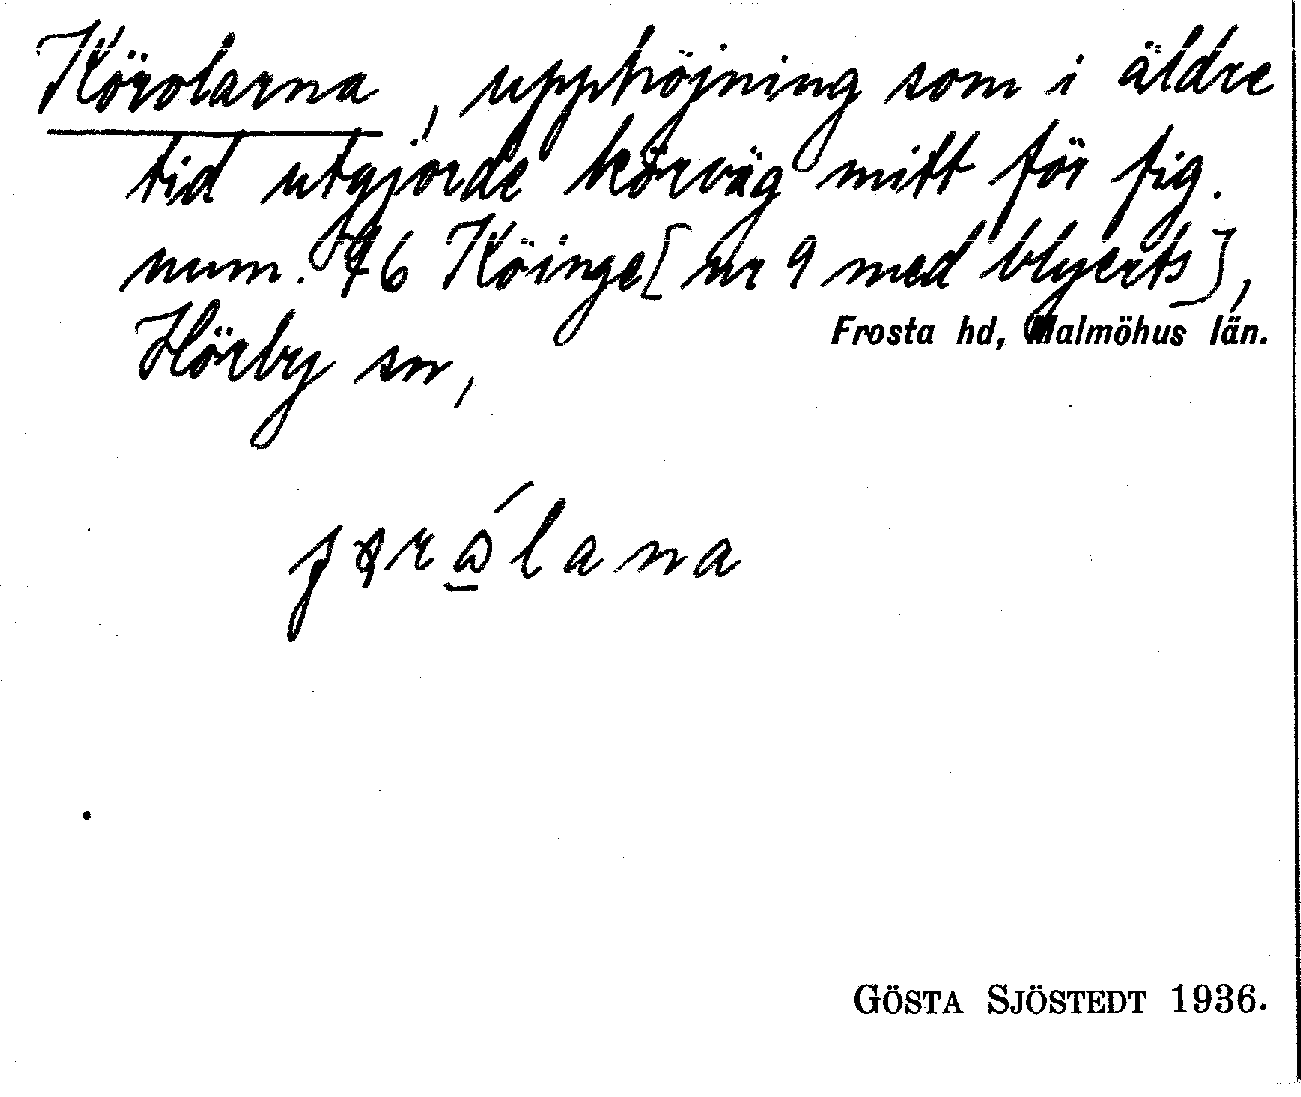 Körolarna, upphöjning som i äldre
tid utgjorde körväg mitt för fig.
num. 76 Köinge [nr 9 med blyerts],
Hörby sn,
Frosta hd, Malmöhus län.
GÖSTA SJÖSTEDT 1936.